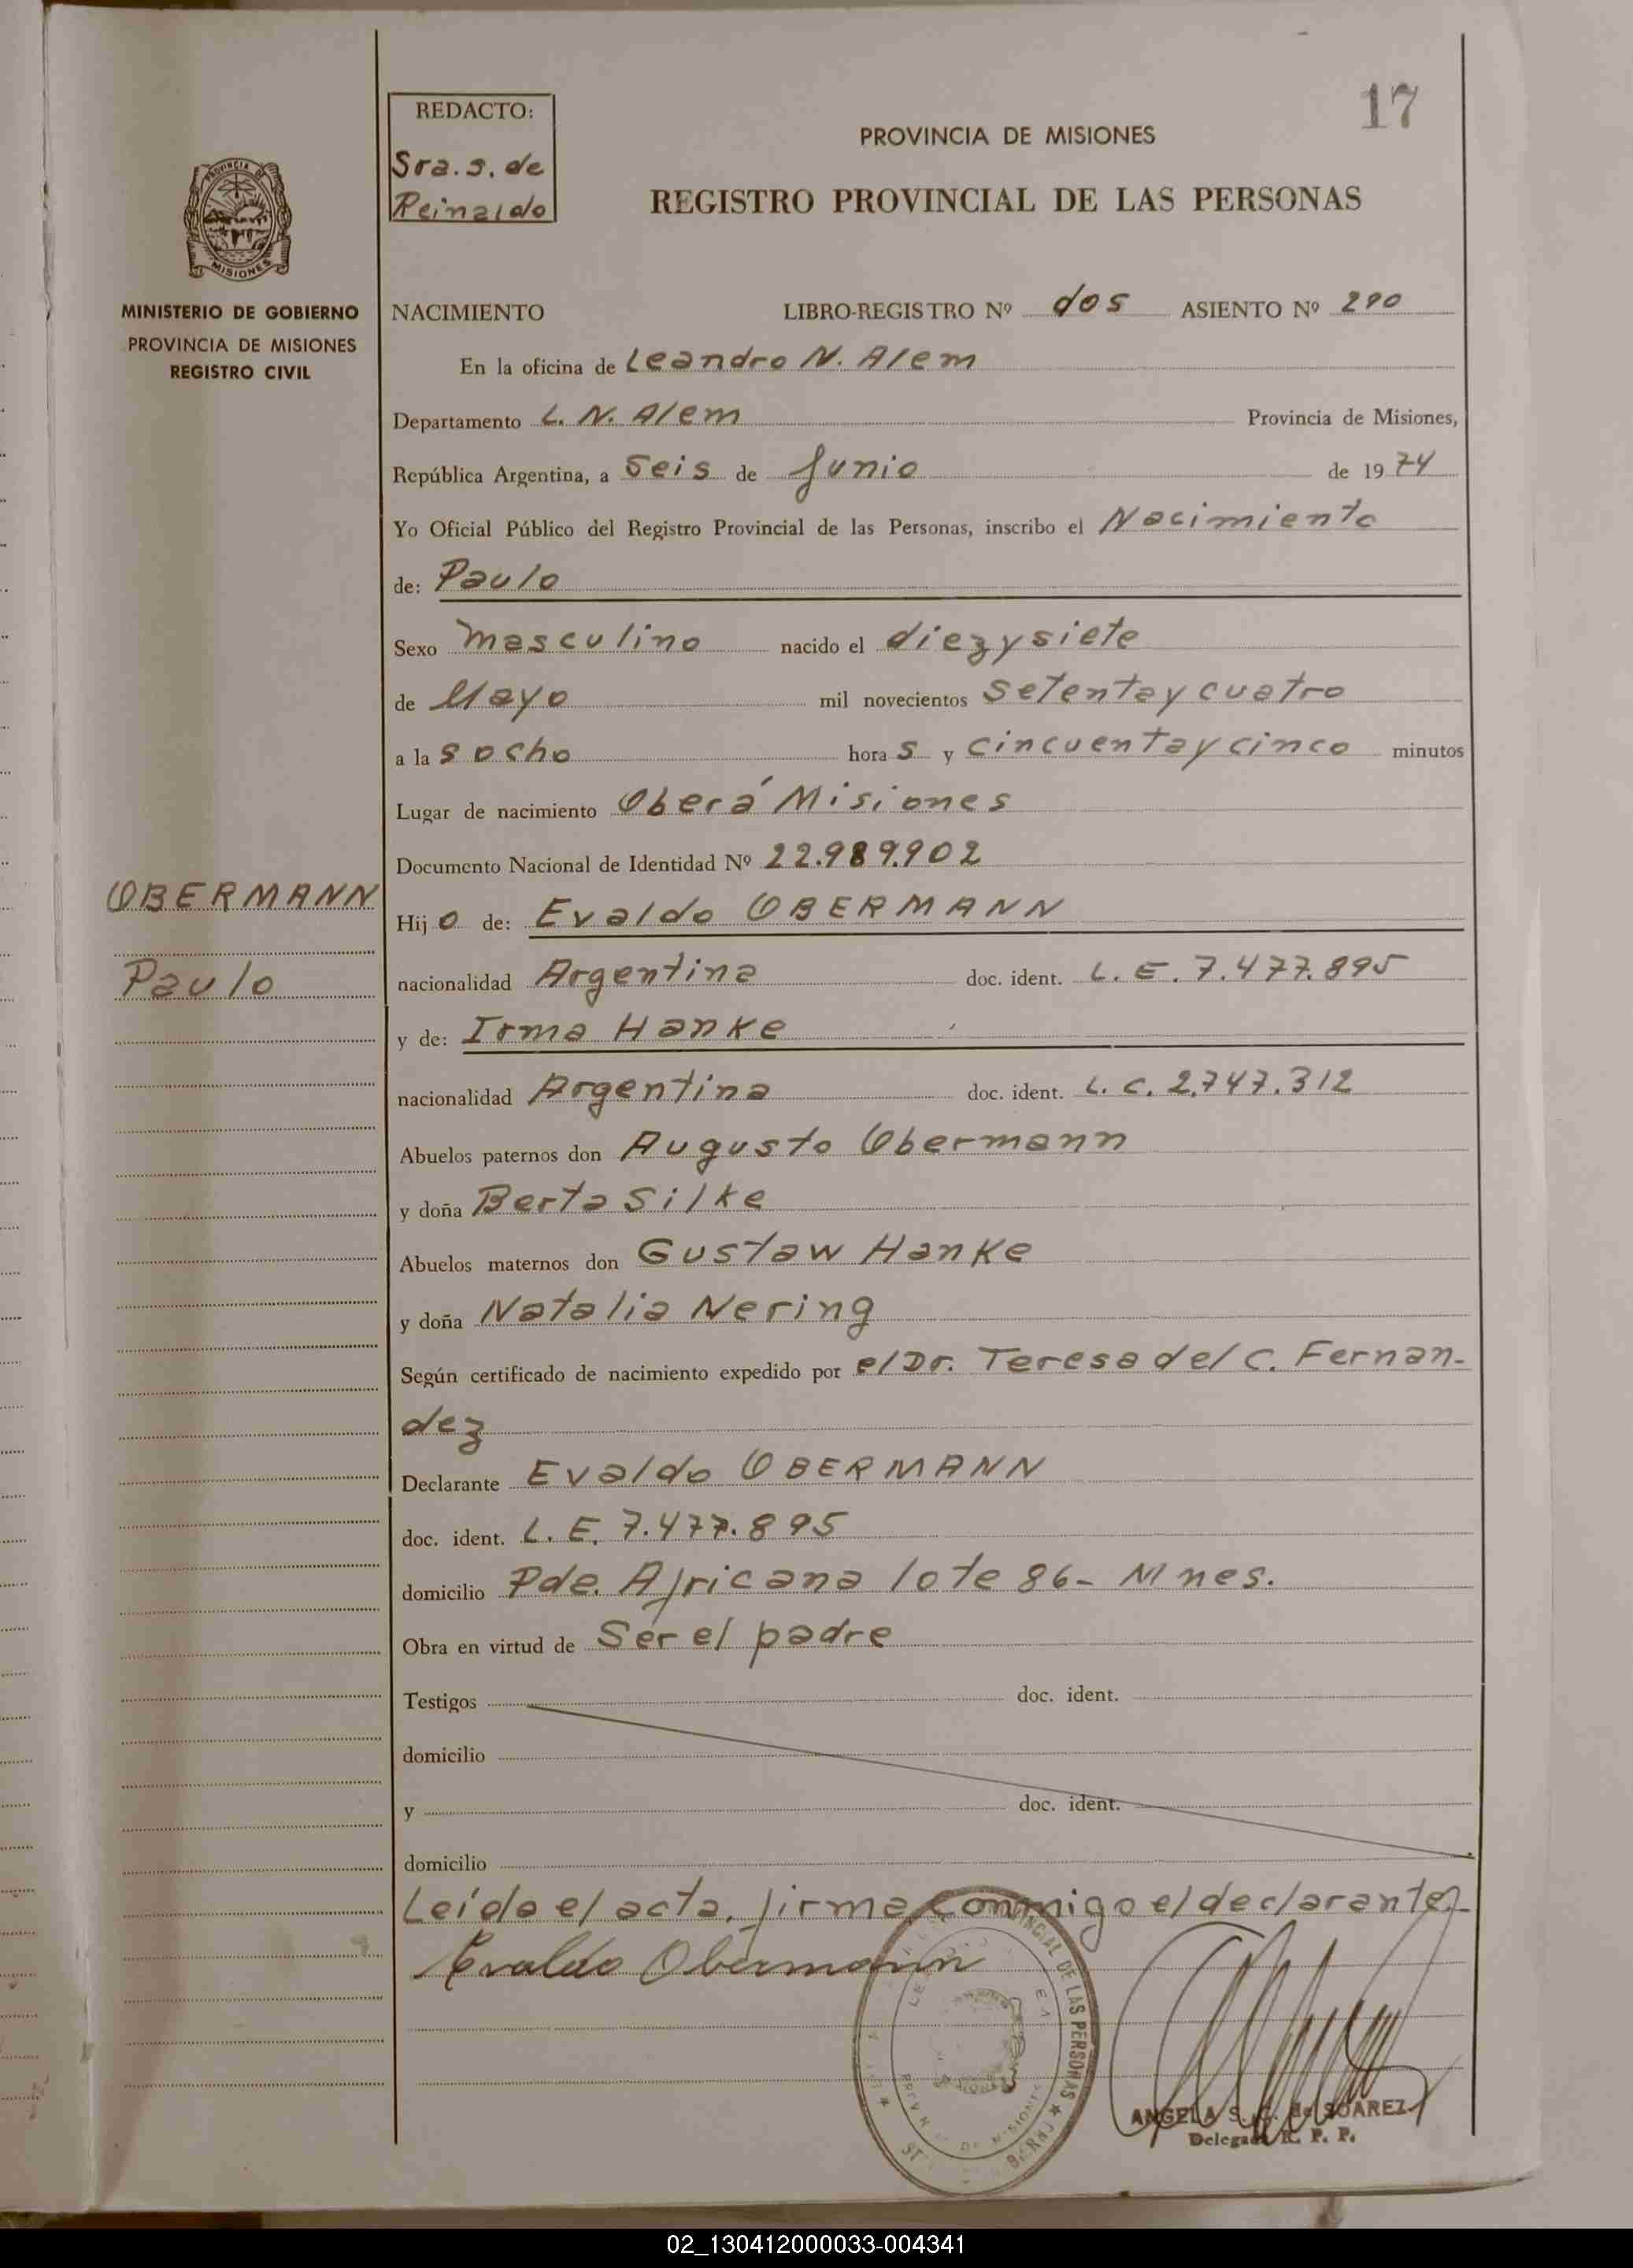 17
REDACTO:
Sra. S. de
Reinaldo
PROVINCIA DE MISIONES
REGISTRO PROVINCIAL DE LAS PERSONAS
PROVINCIA DE
MISIONES
MINISTERIO DE GOBIERNO
PROVINCIA DE MISIONES
REGISTRO CIVIL
NACIMIENTO LIBRO-REGISTRO Nº dos ASIENTO Nº 290
En la oficina de Leandro N. Alem
Departamento L. N. Alem Provincia de Misiones,
República Argentina, a Seis de Junio de 1974
Yo Oficial Público del Registro Provincial de las Personas, inscribo el Nacimiento
de: Paulo
Sexo masculino nacido el diezysiete
de Mayo mil novecientos Setentaycuatro
a las ocho horas y cincuentaycinco minutos
Lugar de nacimiento Oberá Misiones
Documento Nacional de Identidad Nº 22.989.902
OBERMANN
Paulo
Hijo de: Evaldo OBERMANN
nacionalidad Argentina doc. ident. L. E. 7.477.895
y de: Irma Hanke
nacionalidad Argentina doc. ident. L. C. 2.747.312
Abuelos paternos don Augusto Obermann
y doña Berta Silke
Abuelos maternos don Gustaw Hanke
y doña Natalia Nering
Según certificado de nacimiento expedido por el Dr. Teresa del C. Fernan-
dez
Declarante Evaldo OBERMANN
doc. ident. L. E. 7.477.895
domicilio Pde. Africana lote 86- Mnes.
Obra en virtud de Ser el padre
Testigos doc. ident.
domicilio
y doc. ident.
domicilio
Leído el acta, firma conmigo el declarante.-
Evaldo Obermann
DE LAS PERSONAS
ANGELA S. de SUAREZ
Delegada R. P. P.
02_130412000033-004341